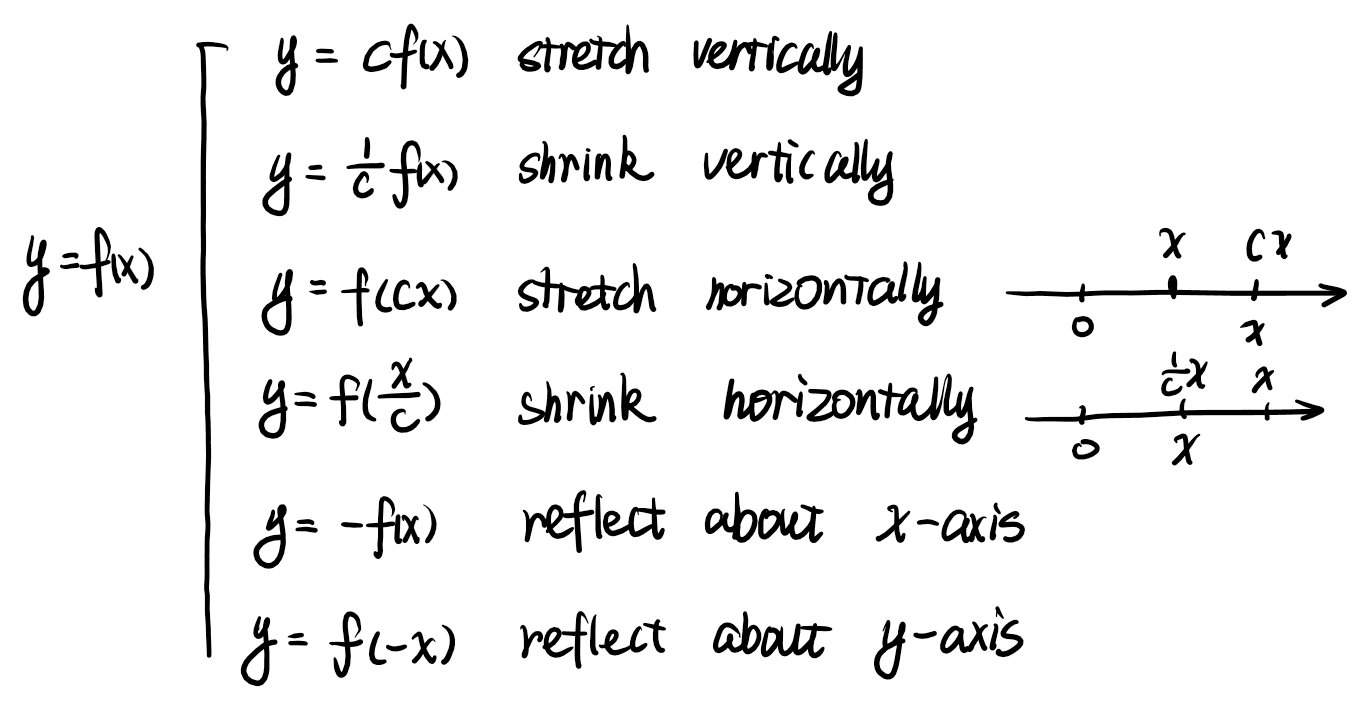 y = cf(x) stretch vertically
y = 1/c f(x) shrink vertically
y = f(x)
y = f(cx) stretch horizontally
x cx
0 x
y = f(x/c) shrink horizontally
1/c x x
0 x
y = -f(x) reflect about x-axis
y = f(-x) reflect about y-axis